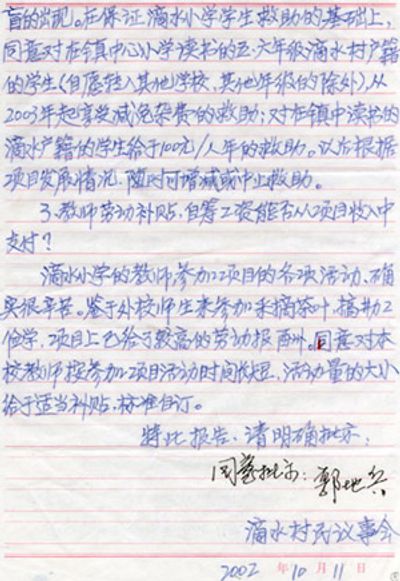 盲的出现。在保证滴水小学学生救助的基础上,
同意对在镇中心小学读书的五.六年级滴水村户籍
的学生(自愿转入其他学校,其他年级的除外),从
2003年起享受减免杂费的救助;对在镇中读书的
滴水户籍的学生给于100元/人年的救助。以后根据
项目发展情况.随时可增减或中止救助。
3.教师劳动补贴,自筹工资能否从项目收入中
支付?
滴水小学的教师,参加项目的各项活动、确
实很辛苦。鉴于外校师生来参加采摘茶叶,搞勤工
俭学,项目上已给于较高的劳动报酬。同意对本
校教师按参加项目活动时间长短,活动量的大小
给于适当补贴,标准自订。
特此报告、请明确批示;
同意批示:郭地兵
滴水村民议事会
2002年10月11日